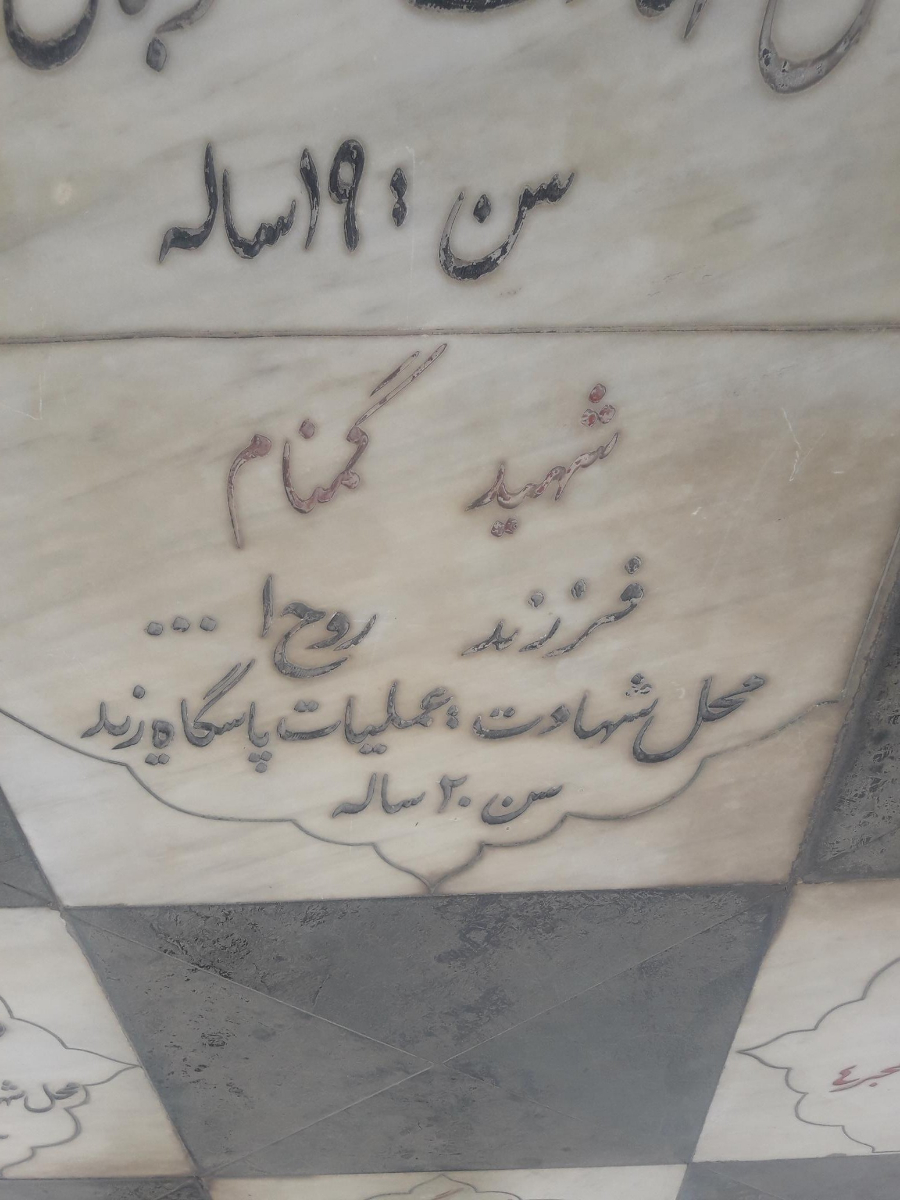 سن : ۱۹ ساله
شهید گمنام
فرزند روح ا ...
محل شهادت : عملیات پاسگاه زید
سن ۲۰ ساله
محل